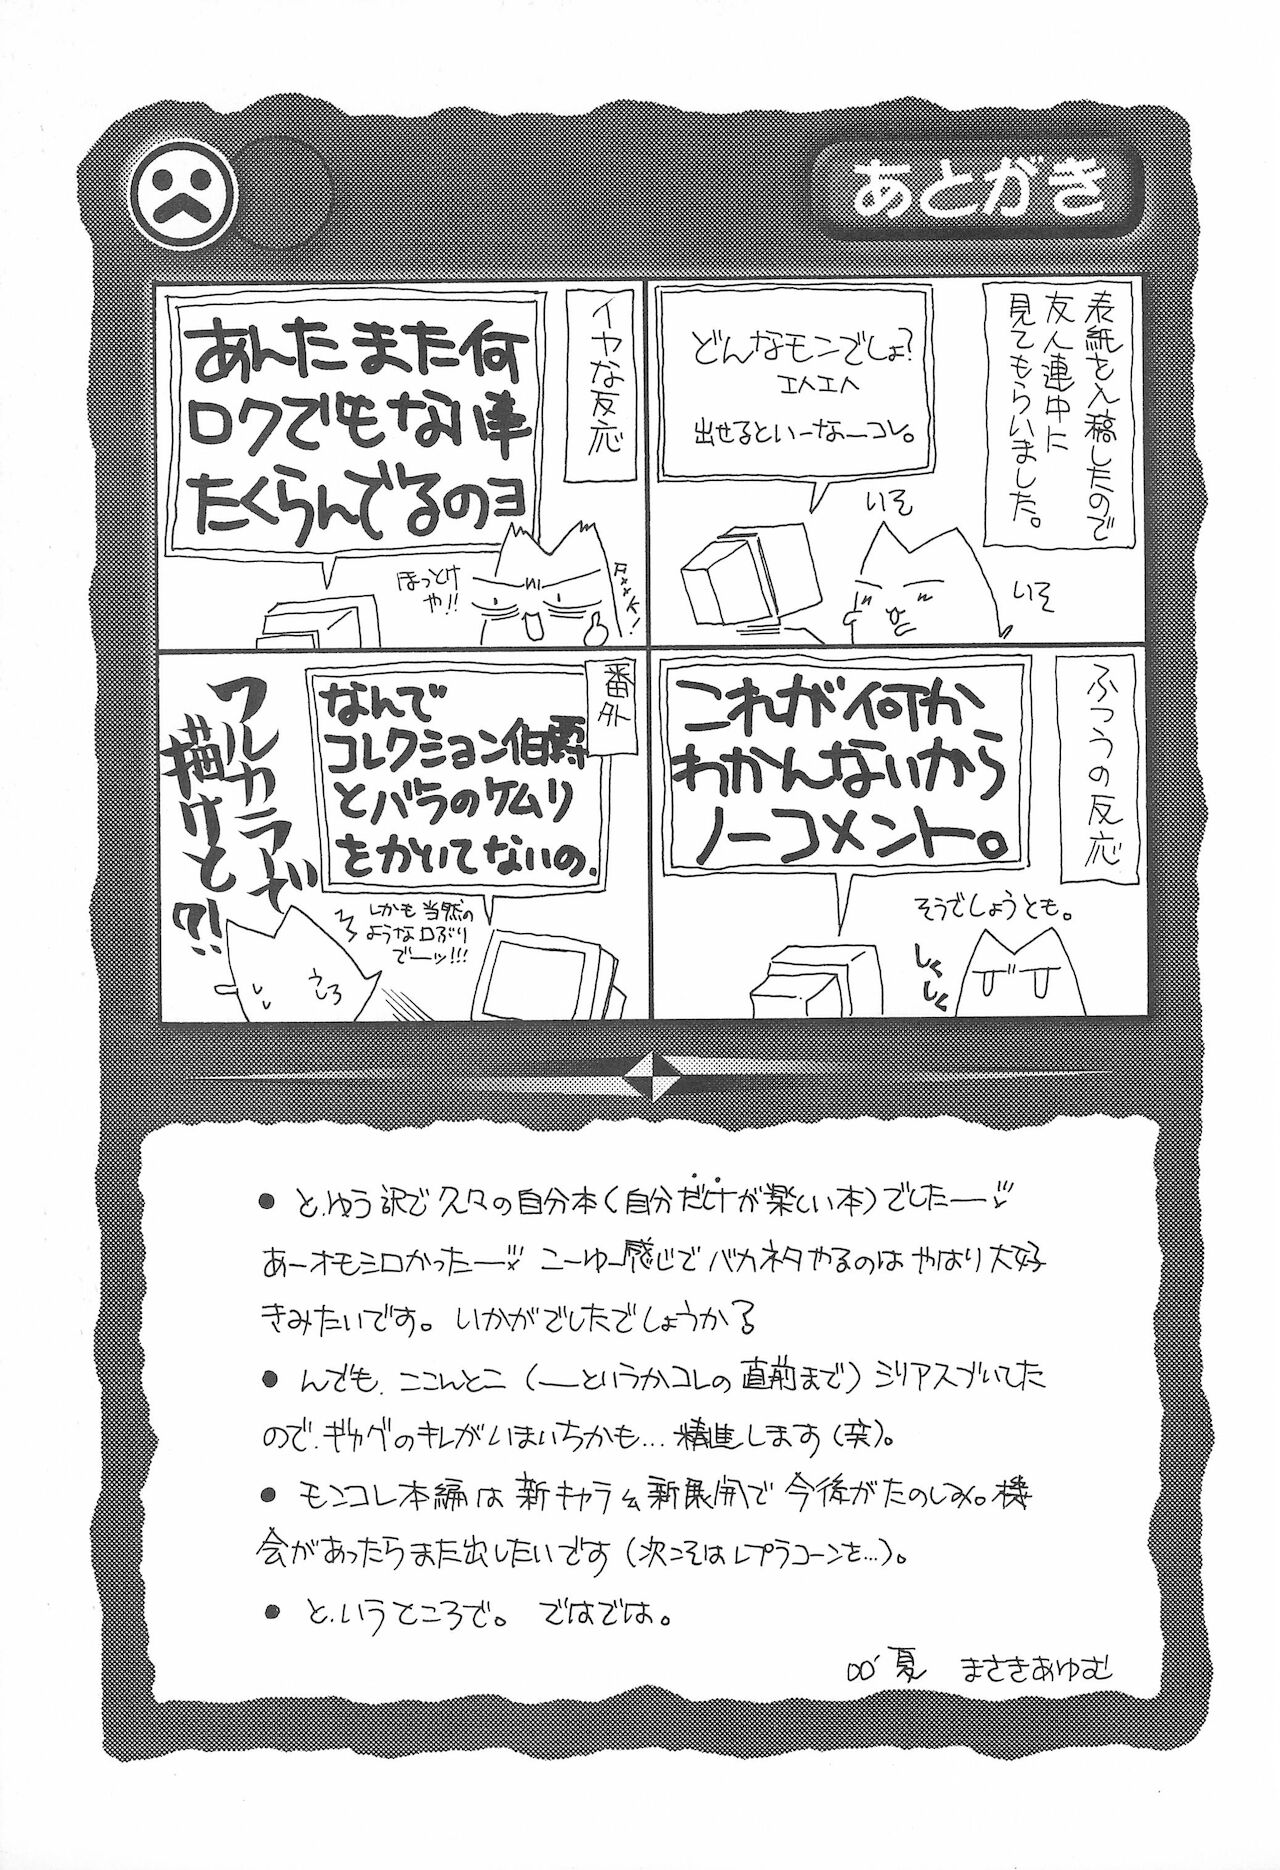 あとがき
表紙を入稿したので
友人連中に
見てもらいました。
どんなモンでしょ?
エヘエヘ
出せるといーなーコレ。
いそ
いそ
イヤな反応
あんたまた何
ロクでもない事
たくらんでるのヨ
ほっとけ
や!!
ふつうの反応
これが何か
わかんないから
ノーコメント。
そうでしょうとも。
しくしく
番外
なんで
コレクション伯爵
とバラのケムリ
をかいてないの.
しかも当然の
ような口ぶり
でーッ!!!
フルカラーで
描けと?!
うしろ
● と、ゆう訳で久々の自分本(自分だけが楽しい本)でしたー
あーオモシロかったー こーゆー感じでバカネタやるのはやはり大好
きみたいです。いかがでしたでしょうか?
● んでも、ここんとこ(ーというかコレの直前まで)シリアスづいてた
ので、ギャグのキレがいまいちかも…精進します(笑)。
● モンコレ本編は新キャラ&新展開で今後がたのしみ。機
会があったらまた出したいです(次こそはレプラコーンを…)。
● と、いうところで。 ではでは。
00'夏 まさきあゆむ